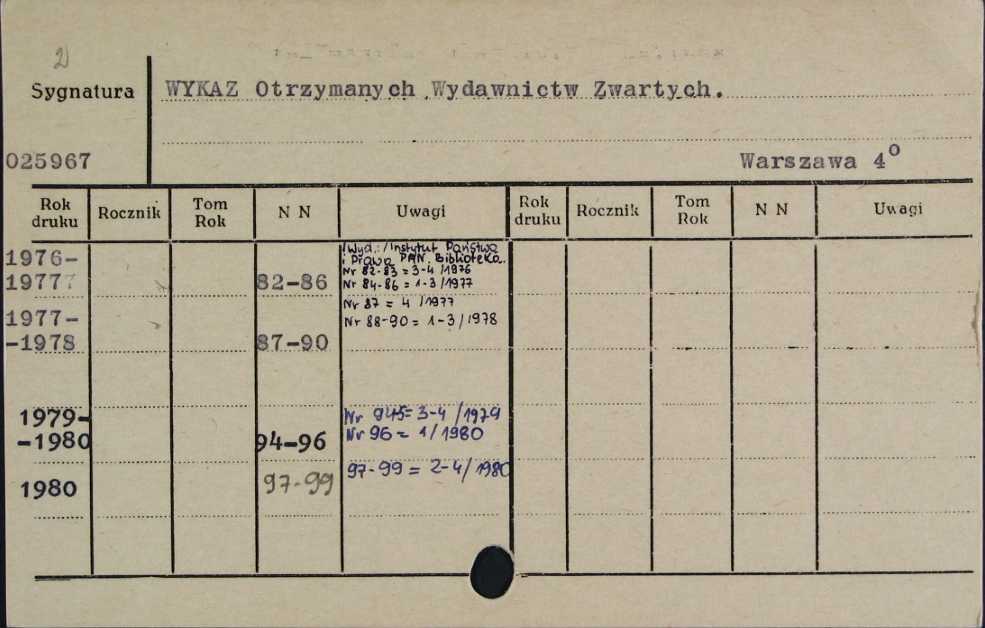 2)
Sygnatura
WYKAZ Otrzymanych Wydawnictw Zwartych.
025967
Warszawa 4°
Rok druku Rocznik Tom Rok N N Uwagi Rok druku Rocznik Tom Rok N N Uwagi
/Wyd.:/Instytut Państwa
i Prawa PAN. Biblioteka.
1976-
Nr 82-83 = 3-4 /1976
1977 82-86 Nr 84-86 = 1-3/1977
Nr 87 = 4 /1977
1977-
Nr 88-90 = 1-3/1978
-1978 87-90
1979-
Nr 945= 3-4 /1979
-1980 94-96 Nr 96 = 1/1980
97-99 = 2-4/1980
1980 97-99